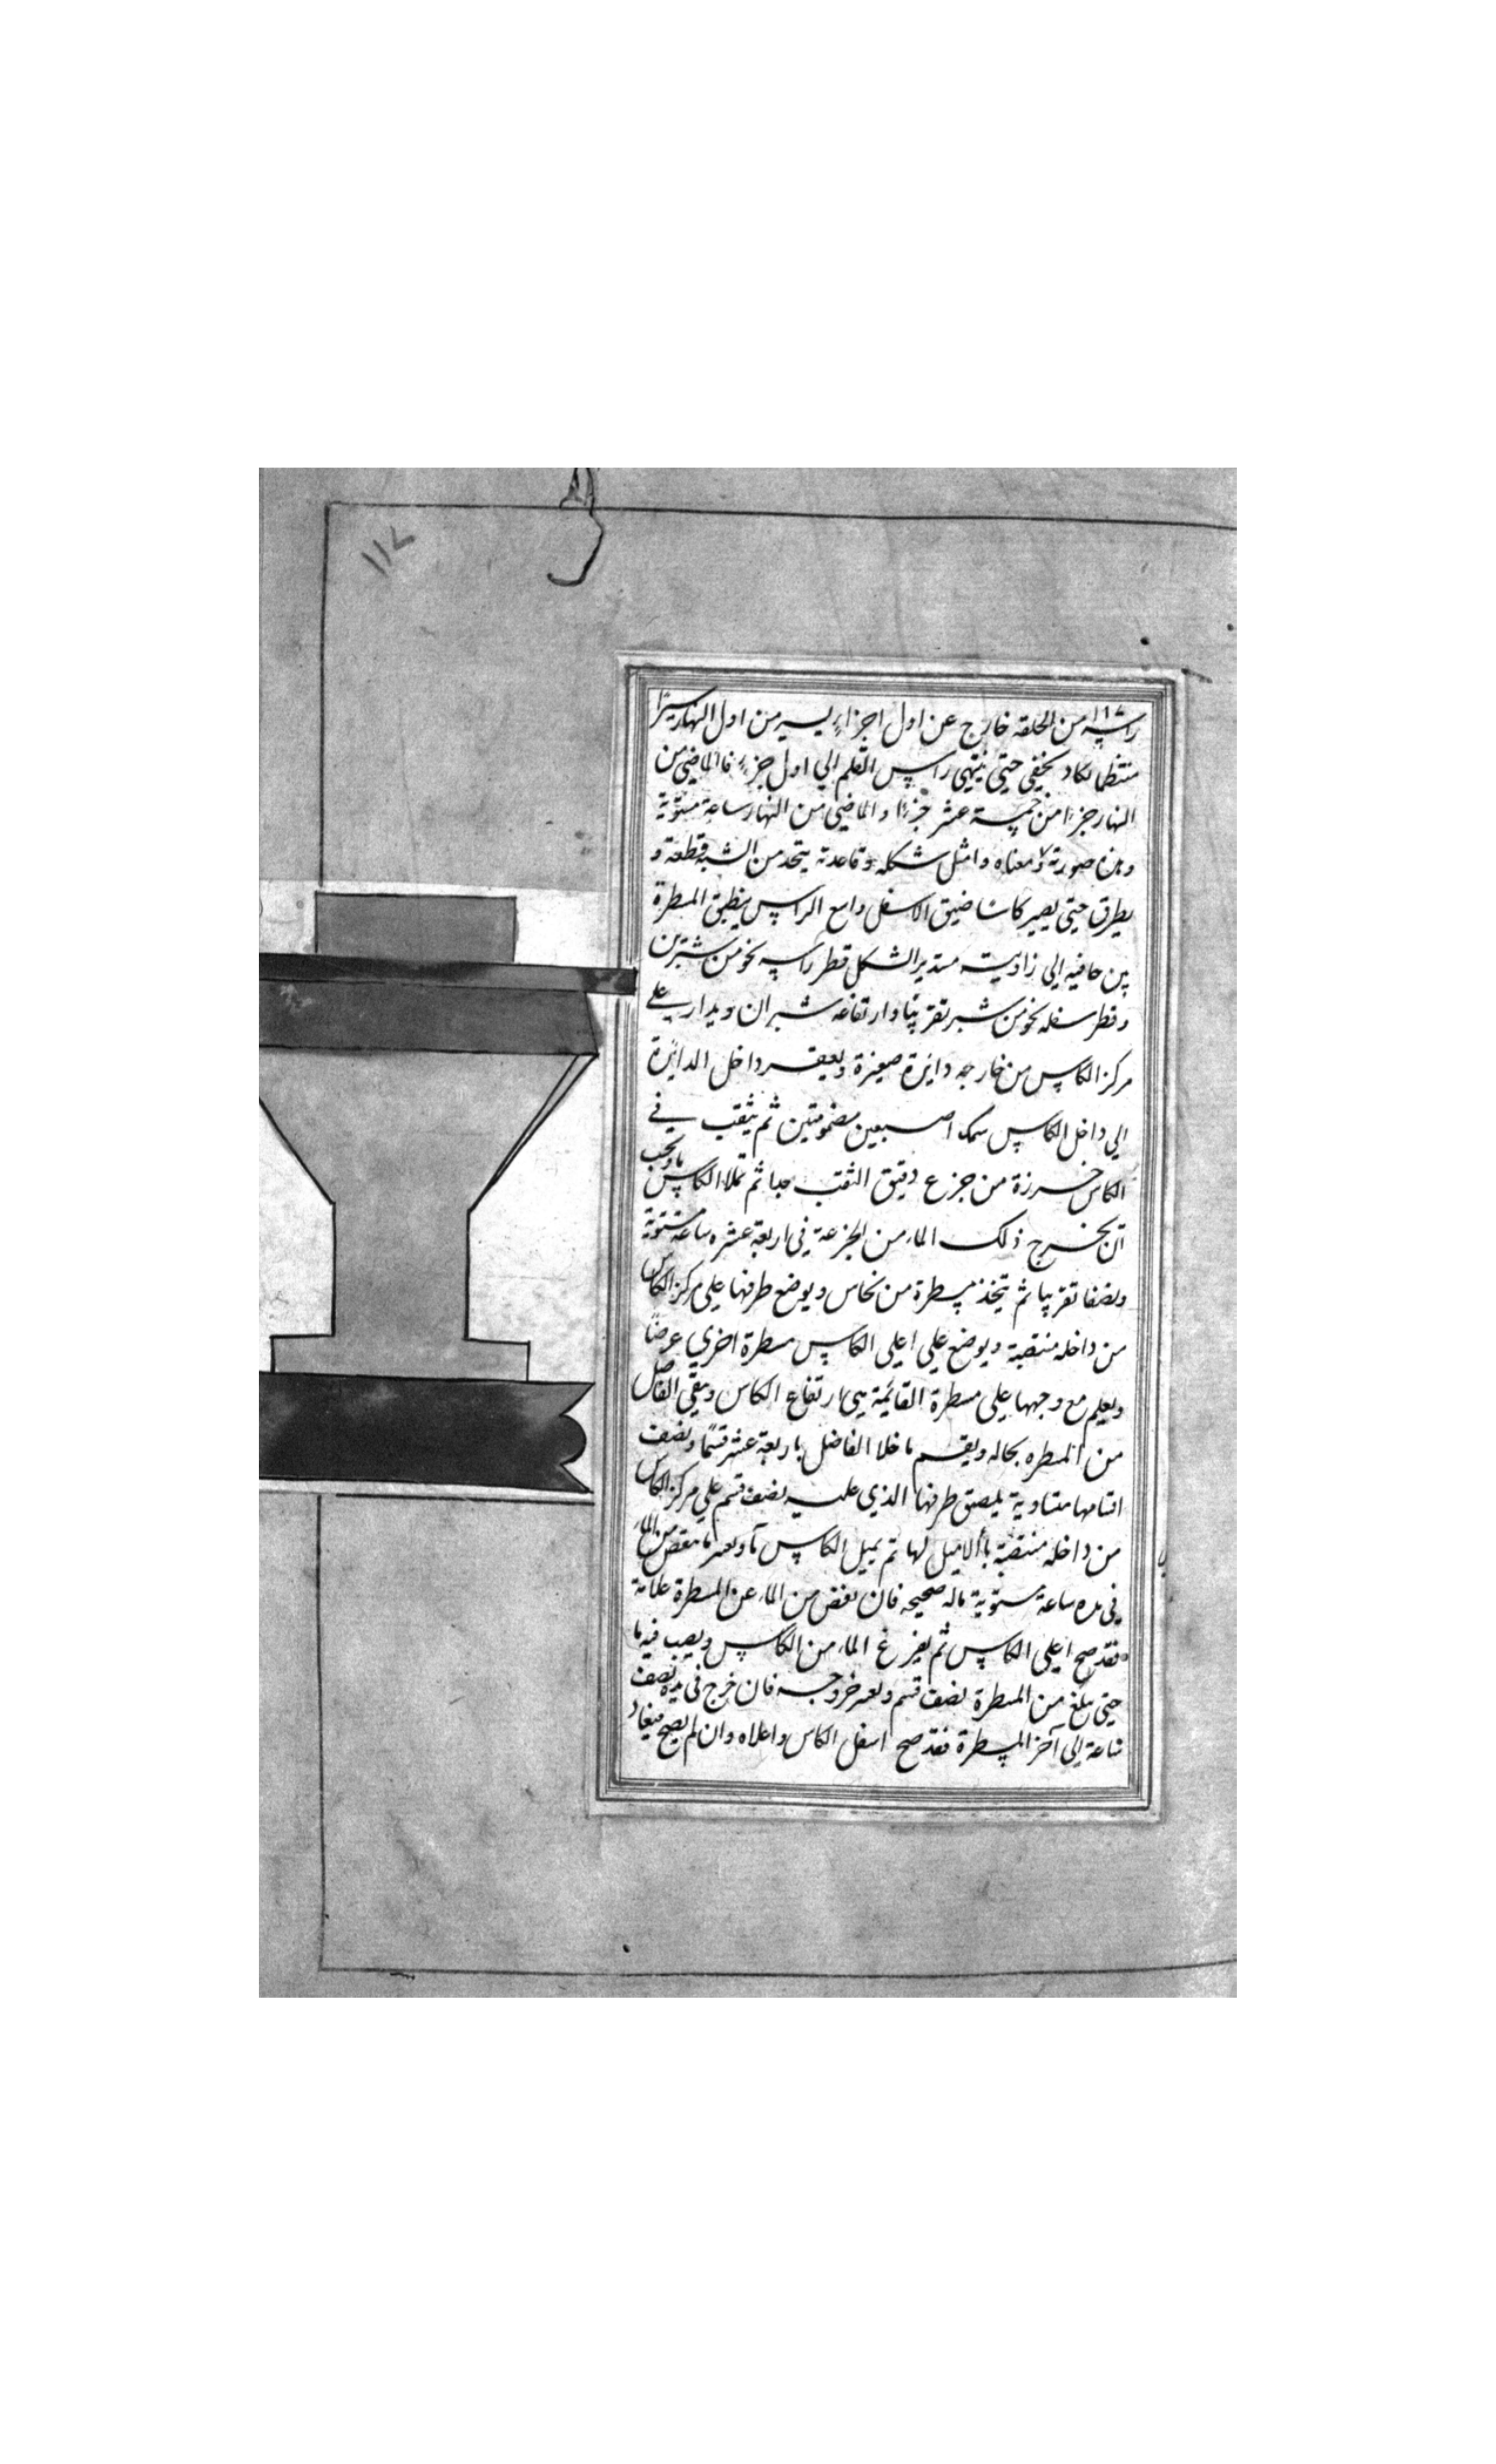 ١١٧
راسه من الحلقه خارج عن اول اجزاء يسير من اول النهار سيرًا
منتظما لكاد يخفي حتي ينتهي راس القلم الي اول جزء فالماضي من
النهار جزءا من خمسة عشر جزءا والماضي من النهار ساعة مستوية
وهذه صورته لا معناه وامثل شكله وقاعدته يتخذ من الشبه قطعة و
يطرق حتي يصير كاسا ضيق الاسفل واسع الراس ينطبق المسطرة
بين حافيه الي زاويته مستدير الشكل قطر راسه نحو من شبرين
وقطر سفله نحو من شبر تقريبا وارتفاعه شبران ويدار علي
مركز الكاس من خارجه دائرة صغيرة ويقعر داخل الدائرة
الي داخل الكاس سمك اصبعين مضمومتين ثم يثقب في
الكاس خرزة من جزع دقيق الثقب جدا ثم تملا الكاس ما ويجب
ان يخرج ذلك الماء من الجزعة في اربعة عشره ساعة مستوية
ونصفا تقريبا ثم يتخذ مسطرة من نحاس ويوضع طرفها علي مركز الكاس
من داخله منتصبة ويوضع علي اعلي الكاس مسطرة اخري عرضًا
ويعلم مع وجهها علي مسطرة القائمة هي ارتفاع الكاس ويبقي الفاضل
من المسطره بحاله ويقسم ما خلا الفاضل باربعة عشر قسمًا ونصف
اقسامها متساوية يلصق طرفها الذي عليه نصف قسم علي مركز الكاس
من داخله منتصبة بالاميل لها ثم يميل الكاس مآ ويعبر ما نقص من الماء
في مده ساعة مستوية ماله صحيحه فان نقص من الماء عن المسطرة علامة
فقد صح اعلي الكاس ثم يفرغ الماء من الكاس ويصب فيه ما
حتي يبلغ من المسطرة نصف قسم ويعبر خروجه فان خرج في مدة نصف
ساعة الي آخر المسطرة فقد صح اسفل الكاس واعلاه وان لم يصح فيعاد